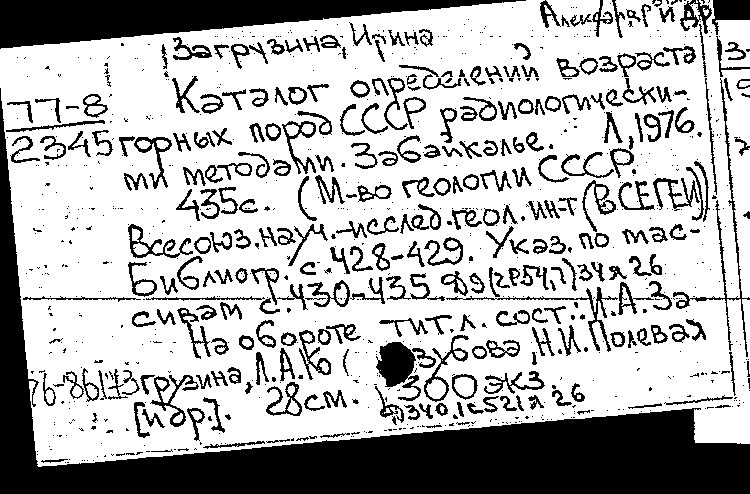 Загрузина, Ирина
Александр и др.
77-8
2345
Каталог определений возраста
горных пород СССР радиологически-
ми методами. Забайкалье. Л, 1976.
435с. (М-во геологии СССР.
Всесоюз.науч.-исслед.геол.ин-т (ВСЕГЕИ))
Библиогр. с.428-429. Указ. по мас-
сивам с.430-435.
На обороте тит.л. сост.: И.А.За-
грузина, Л.А.Ко( зубова, Н.И.Полевая
[и др.]. 28см. 300 экз.
76-86173